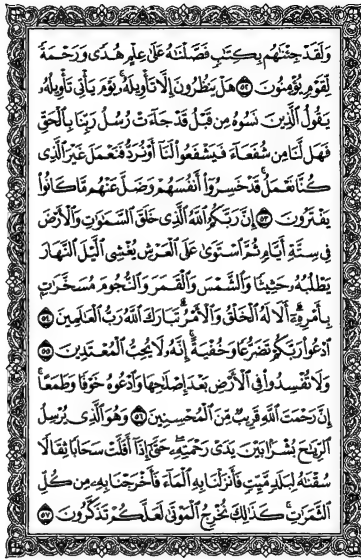 وَلَقَدْ جِئْنَٰهُم بِكِتَٰبٍ فَصَّلْنَٰهُ عَلَىٰ عِلْمٍ هُدًى وَرَحْمَةً
لِّقَوْمٍ يُؤْمِنُونَ ۝٥٢ هَلْ يَنظُرُونَ إِلَّا تَأْوِيلَهُۥ يَوْمَ يَأْتِى تَأْوِيلُهُۥ
يَقُولُ ٱلَّذِينَ نَسُوهُ مِن قَبْلُ قَدْ جَآءَتْ رُسُلُ رَبِّنَا بِٱلْحَقِّ
فَهَل لَّنَا مِن شُفَعَآءَ فَيَشْفَعُوا۟ لَنَآ أَوْ نُرَدُّ فَنَعْمَلَ غَيْرَ ٱلَّذِى
كُنَّا نَعْمَلُ قَدْ خَسِرُوٓا۟ أَنفُسَهُمْ وَضَلَّ عَنْهُم مَّا كَانُوا۟
يَفْتَرُونَ ۝٥٣ إِنَّ رَبَّكُمُ ٱللَّهُ ٱلَّذِى خَلَقَ ٱلسَّمَٰوَٰتِ وَٱلْأَرْضَ
فِى سِتَّةِ أَيَّامٍ ثُمَّ ٱسْتَوَىٰ عَلَى ٱلْعَرْشِ يُغْشِى ٱلَّيْلَ ٱلنَّهَارَ
يَطْلُبُهُۥ حَثِيثًا وَٱلشَّمْسَ وَٱلْقَمَرَ وَٱلنُّجُومَ مُسَخَّرَٰتٍۭ
بِأَمْرِهِۦٓ أَلَا لَهُ ٱلْخَلْقُ وَٱلْأَمْرُ تَبَارَكَ ٱللَّهُ رَبُّ ٱلْعَٰلَمِينَ ۝٥٤
ٱدْعُوا۟ رَبَّكُمْ تَضَرُّعًا وَخُفْيَةً إِنَّهُۥ لَا يُحِبُّ ٱلْمُعْتَدِينَ ۝٥٥
وَلَا تُفْسِدُوا۟ فِى ٱلْأَرْضِ بَعْدَ إِصْلَٰحِهَا وَٱدْعُوهُ خَوْفًا وَطَمَعًا
إِنَّ رَحْمَتَ ٱللَّهِ قَرِيبٌ مِّنَ ٱلْمُحْسِنِينَ ۝٥٦ وَهُوَ ٱلَّذِى يُرْسِلُ
ٱلرِّيَٰحَ بُشْرًۢا بَيْنَ يَدَىْ رَحْمَتِهِۦ حَتَّىٰٓ إِذَآ أَقَلَّتْ سَحَابًا ثِقَالًا
سُقْنَٰهُ لِبَلَدٍ مَّيِّتٍ فَأَنزَلْنَا بِهِ ٱلْمَآءَ فَأَخْرَجْنَا بِهِۦ مِن كُلِّ
ٱلثَّمَرَٰتِ كَذَٰلِكَ نُخْرِجُ ٱلْمَوْتَىٰ لَعَلَّكُمْ تَذَكَّرُونَ ۝٥٧